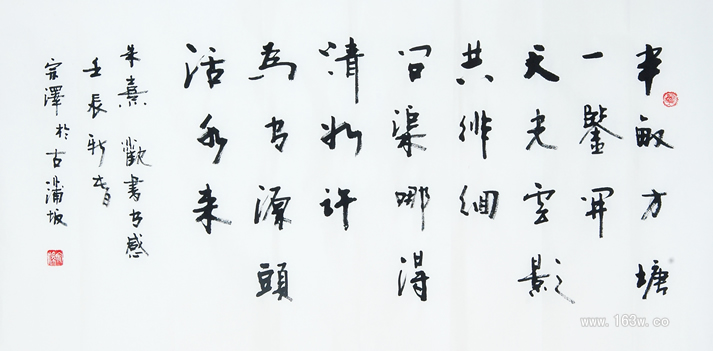 半畝方塘
一鑒開
天光雲影
共徘徊
問渠哪得
清如許
為有源頭
活水来
朱熹 觀書有感
壬辰新春
宗澤於古蒲坂
www.163w.co